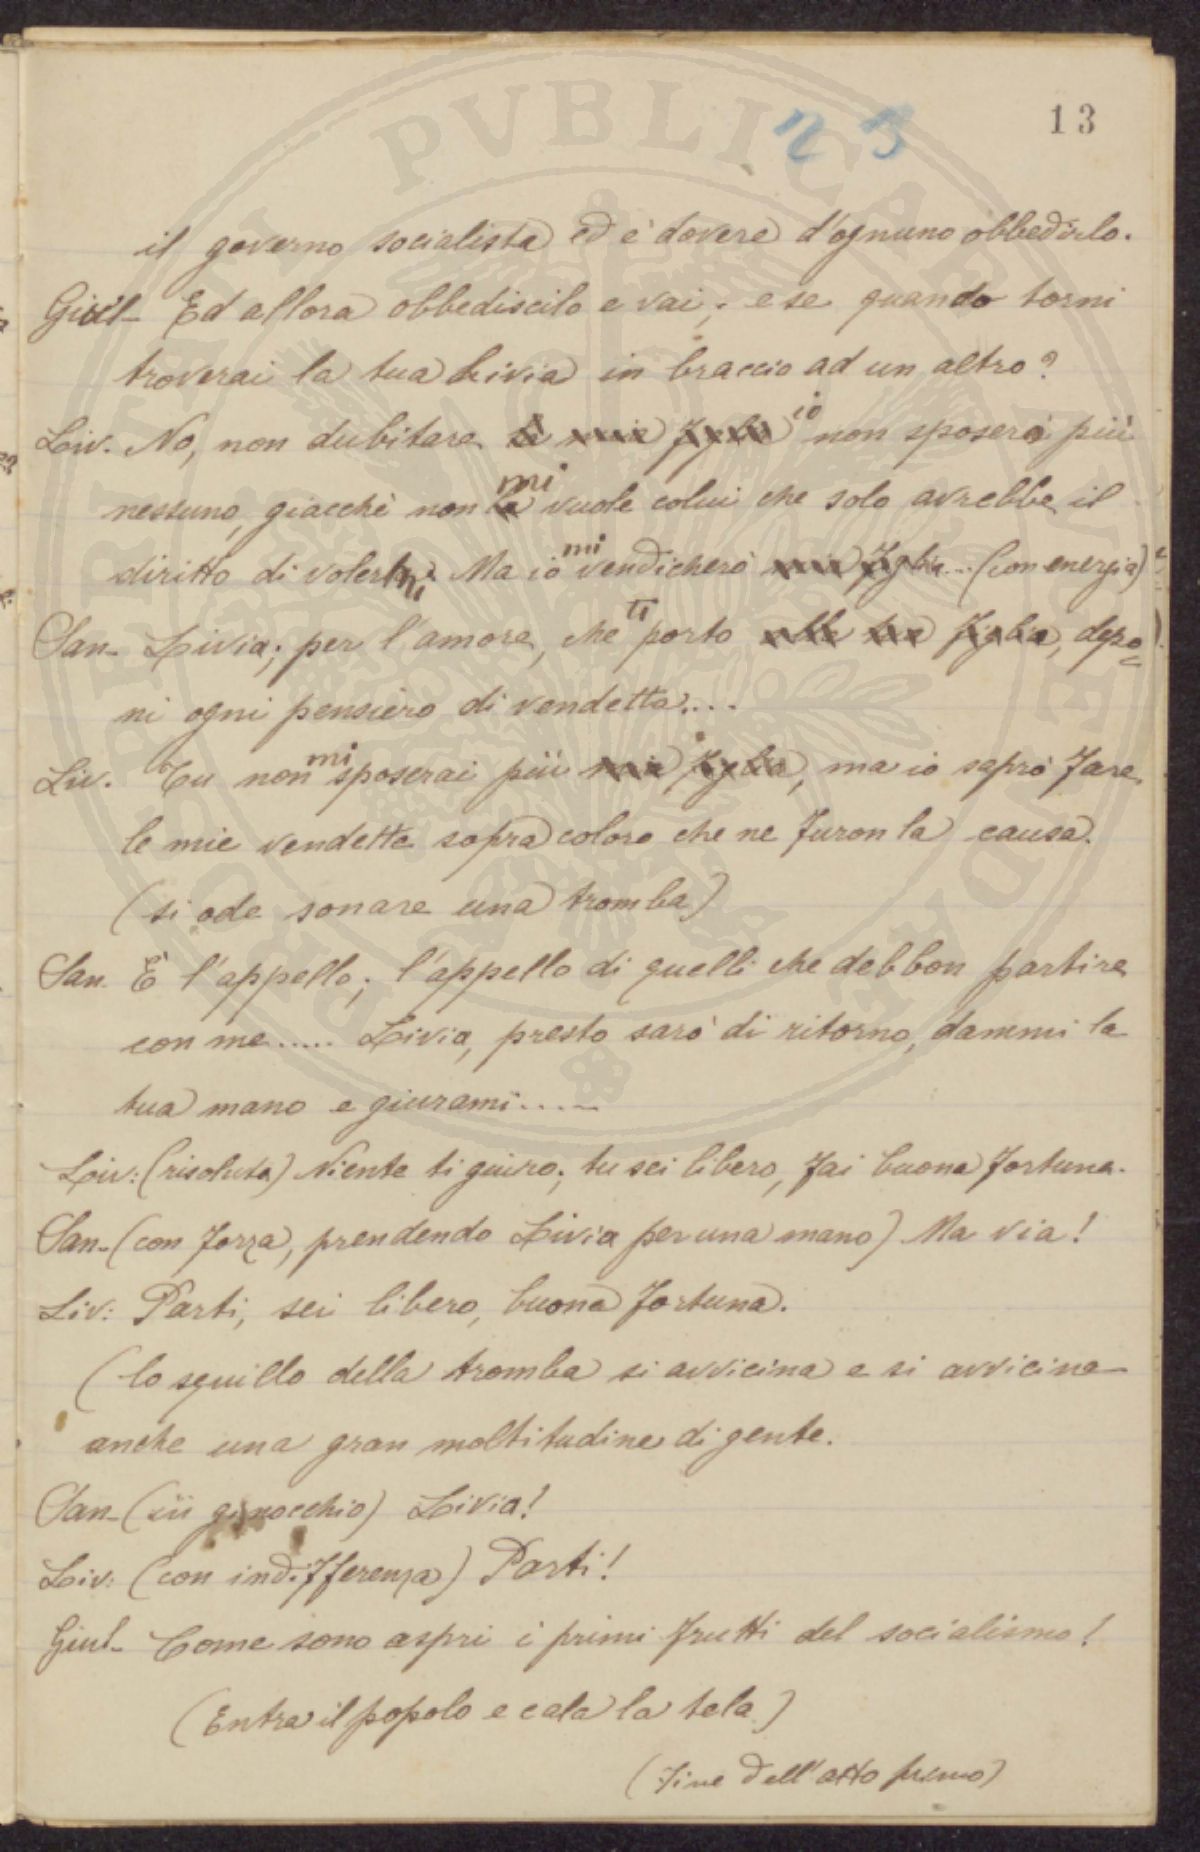 13
23
il governo socialista ed è dovere d'ognuno obbedirlo.
Giul- Ed allora obbediscilo e vai; e se quando torni
troverai la tua Livia in braccio ad un altro?
Liv. No, non dubitare la mia figlia io non sposerò più
nessuno, giacchè non la mi vuole colui che solo avrebbe il
diritto di volermi. Ma io mi vendicherò mia figlia... (con energia)
San- Livia; per l'amore, che ti porto alla tua figlia, depo=
ni ogni pensiero di vendetta....
Liv. Tu non mi sposerai più mia figlia, ma io saprò fare
le mie vendette sopra coloro che ne furon la causa.
(si ode sonare una tromba)
San. È l'appello; l'appello di quelli che debbon partire
con me..... Livia, presto sarò di ritorno, dammi la
tua mano e giurami.....
Liv: (risoluta) Niente ti giuro; tu sei libero, fai buona fortuna.
San- (con forza, prendendo Livia per una mano) Ma via!
Liv: Parti, sei libero, buona fortuna.
(lo squillo della tromba si avvicina e si avvicina
anche una gran moltitudine di gente.
San- (in ginocchio) Livia!
Liv: (con indifferenza) Parti!
Giul- Come sono aspri i primi frutti del socialismo!
(Entra il popolo e cala la tela)
(Fine dell'atto primo)